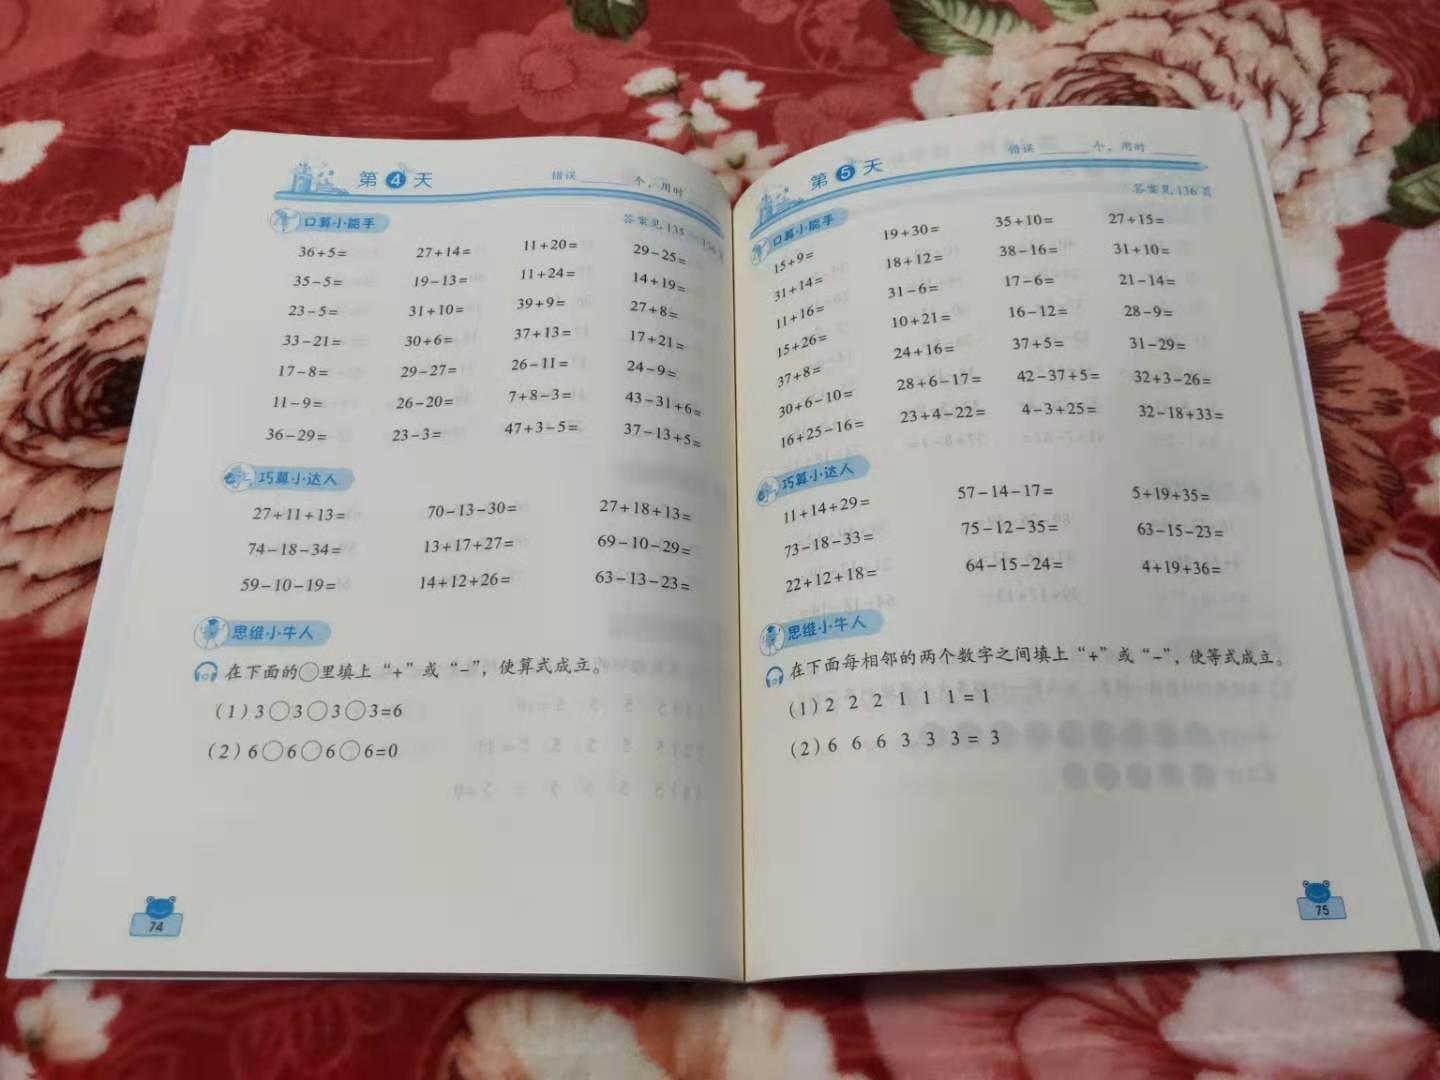 第 4 天 错误 个，用时
口算小能手 答案见 135—136 页
36+5= 27+14= 11+20= 29-25=
35-5= 19-13= 11+24= 14+19=
23-5= 31+10= 39+9= 27+8=
33-21= 30+6= 37+13= 17+21=
17-8= 29-27= 26-11= 24-9=
11-9= 26-20= 7+8-3= 43-31+6=
36-29= 23-3= 47+3-5= 37-13+5=
巧算小达人
27+11+13= 70-13-30= 27+18+13=
74-18-34= 13+17+27= 69-10-29=
59-10-19= 14+12+26= 63-13-23=
思维小牛人
在下面的○里填上“+”或“-”，使算式成立。
(1) 3○3○3○3=6
(2) 6○6○6○6=0
74
第 5 天 错误 个，用时
答案见 136 页
口算小能手
15+9= 19+30= 35+10= 27+15=
31+14= 18+12= 38-16= 31+10=
11+16= 31-6= 17-6= 21-14=
15+26= 10+21= 16-12= 28-9=
37+8= 24+16= 37+5= 31-29=
30+6-10= 28+6-17= 42-37+5= 32+3-26=
16+25-16= 23+4-22= 4-3+25= 32-18+33=
巧算小达人
11+14+29= 57-14-17= 5+19+35=
73-18-33= 75-12-35= 63-15-23=
22+12+18= 64-15-24= 4+19+36=
思维小牛人
在下面每相邻的两个数字之间填上“+”或“-”，使等式成立。
(1) 2 2 2 1 1 1 = 1
(2) 6 6 6 3 3 3 = 3
75